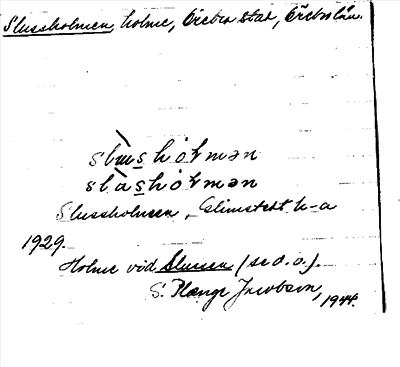 Slussholmen, holme, Örebro stad, Örebro län.
slùsholmən
slàsholmən
Slussholmen, Elimstedt h-a
1929.
Holme vid Slussen (se d. o.).
S. Plange Jacobson,
1944.